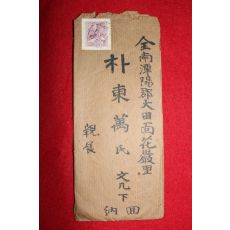 全南潭陽郡大田面花巖里
朴東萬氏
文几下
回納
親展